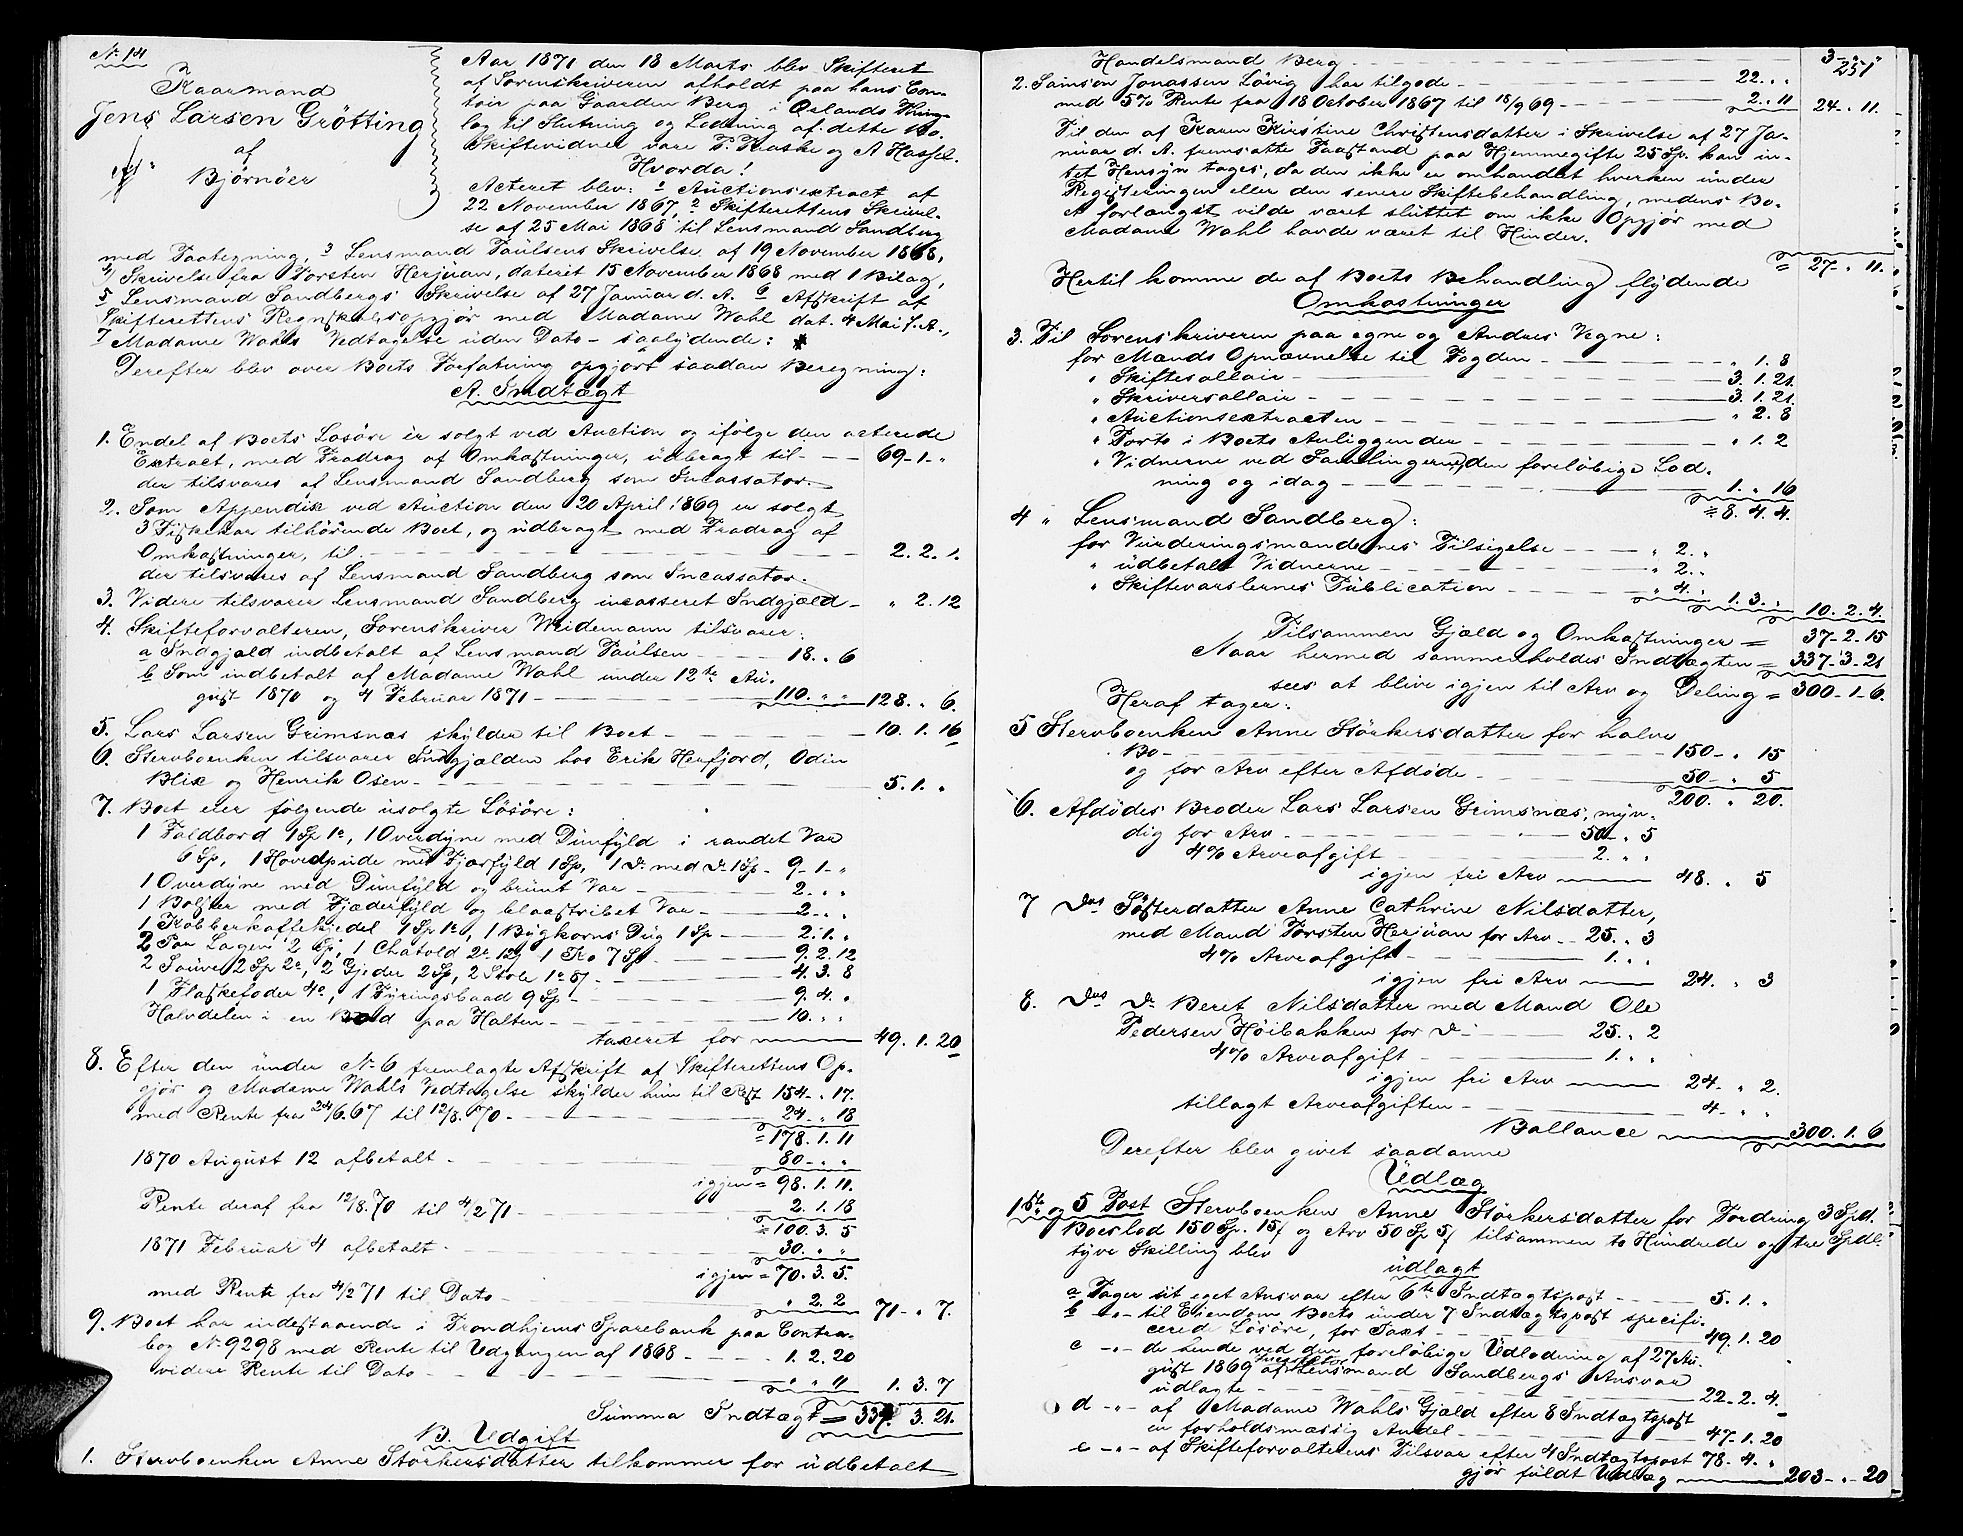 No 14
Kaarmand
Jens Larsen Grötting
af
Bjørnöer
Aar 1871 den 18 Marts blev Skifteret
af Sorenskriveren afholdt paa hans Con-
toir paa Gaarden Berg i Ørlands Thing-
lag til Slutning og Lodning af dette Bo.
Skiftevidner vare P. Kraske og A Hassel.
Hvorda!
Acteret blev: 1 Auctionsextract af
22 November 1867, 2 Skifterettens Skrivel-
se af 25 Mai 1868 til Lensmand Sandberg
med Paategning, 3 Lensmand Paulsens Skrivelse af 19 November 1868,
4 Skrivelse fra Torsten Herjuan, dateret 15 November 1868 med 1 Bilag,
5 Lensmand Sandbergs Skrivelse af 27 Januar d. A. 6 Afskrift af
Skifterettens Regnskabsopgjör med Madame Wahl dat. 4 Mai f. A.,
7 Madame Wahls Vedtagelse uden Dato – saalydende:
Derefter blev over Boets Forfatning opgjort saadan Beregning:
A. Indtægt
1. Endel af Boets Lösöre er solgt ved Auction og ifölge den acterede
Extract, med Fradrag af Omkostninger, udbragt til - 69 - 1 - "
der tilsvares af Lensmand Sandberg som Incassator.
2. Som Appendix ved Auction den 20 April 1869 er solgt
3 Fiskekar tilhörende Boet, og udbragt med Fradrag af
Omkostninger, til - 2. 2. 1.
der tilsvares af Lensmand Sandberg som Incassator.
3. Videre tilsvarer Lensmand Sandberg incasseret Indgjæld - " 2. 12
4. Skifteforvalteren, Sorenskriver Weidemann tilsvarer:
a Indgjæld indbetalt af Lensmand Paulsen - 18. " 6
b Som indbetalt af Madame Wahl under 12te Au-
gust 1870 og 4 Februar 1871 - 110. " " 128. " 6.
5. Lars Larsen Grimsnæs skylder til Boet - 10. 1. 16
6. Stervboenken tilsvarer Indgjælden hos Erik Herfjord, Odin
Blix og Henrik Osen - 5. 1. "
7. Boet eier fölgende usolgte Lösöre:
1 Foldbord 1 Sp 1 o, 1 Overdyne med Duunfyld i randet Var
6 Sp, 1 Hovedpude med Fjærfyld 1 Sp, 1 do med do 1 Sp - 9 - 1 - "
1 Overdyne med Duunfyld og bruunt Var - 2. " "
1 Bolster med Fjæderfyld og blaastribet Var - 2. " "
1 Kobberkaffekjedel 1 Sp 1 o, 1 Bygkorns Dug 1 Sp - 2. 1. "
2 Par Lagen 2 Sp, 1 Chatold 2 o 12 s, 1 Ko 7 Sp - 9. 2. 12
2 Sauer 2 Sp 2 o, 2 Gjeder 2 Sp, 2 Stole 1 o 8 s - 4. 3. 8
1 Flaskefoder 4 o, 1 Fyringsbaad 9 Sp - 9. 4. "
Halvdelen i en Bod paa Halten - 10. " "
taxeret for 49. 1. 20
8. Efter den under No 6 fremlagte Afskrift af Skifterettens Op-
gjör og Madame Wahls Vedtagelse skylder hun til Rest 154 - " 17.
med Rente fra 24/6. 67 til 12/8. 70 - 24 - " 18
= 178. 1. 11
1870 August 12 afbetalt - 80 - " "
igjen = 98. 1. 11.
Rente deraf fra 12/8. 70 til 4/2 71 - 2. 1. 18
= 100. 3. 5
1871 Februar 4 afbetalt - 30. " "
igjen = 70. 3. 5.
med Rente fra 4/2 71 til Dato - " 2. 2 71 - " 7.
9. Boet har indestaaende i Trondhjems Sparebank paa Contra-
bog No 9298 med Rente til Udgangen af 1868 - 1. 2. 20
videre Rente til Dato - " " 11 1. 3. 7
Summa Indtægt = 337. 3. 21.
B. Udgift
1. Stervboenken Anne Störkersdatter tilkommer for udbetalt
251
Handelsmand Berg - 3 - " - "
2. Samson Jonassen Lövig har tilgode - 22. " "
med 5% Rente fra 18 October 1867 til 18/9 69 - 2. " 11 24. " 11.
Til den af Karen Kirstine Christensdatter i Skrivelse af 27 Ja-
nuar d. A. fremsatte Paastand paa Hjemmegifte 25 Sp. kan in-
tet Hensyn tages, da den ikke er omhandlet hverken under
Registeringen eller den senere Skiftebehandling, medens Bo-
et forlængst vilde været sluttet om ikke Opgjör med
Madame Wahl havde været til Hinder.
= 27. " 11.
Hertil komme de af Boets Behandling flydende
Omkostninger
3. Til Sorenskriveren paa egne og Andres Vegne:
for Mænds Opnævnelse til Fogden - " 1. 8
" Skiftesallair - 3. 1. 21.
" Skriversallair - 3. 1. 21
" Auctionsextracten - " 2. 8
" Porto i Boets Anliggender - " 1. 2
" Vidnerne ved Samlingerne, den foreløbige Lod-
ning og idag - 1. " 16
= 8. 4. 4.
4 " Lensmand Sandberg:
for Vurderingsmændenes Tilsigelse - " 2. "
" udbetalt Vidnerne - " 2. "
" Skiftevarslernes Publication - " 4. " 1. 3. " 10. 2. 4.
Tilsammen Gjæld og Omkostninger = 37 - 2. 15
Naar hermed sammenholdes Indtægten = 337 - 3 - 21
sees at blive igjen til Arv og Deling = 300 - 1 - 6.
Heraf tager:
5 Stervboenken Anne Störkersdatter for halve
Bo - 150 - " 15
og for Arv efter Afdøde - 50 - " 5
200. " 20.
6. Afdödes Broder Lars Larsen Grimsnæs, myn-
dig for Arv - 50 - " 5
4% Arveafgift - 2. " "
igjen fri Arv 48. " 5
7 Dos Søsterdatter Anne Cathrine Nilsdatter,
med Mand Torsten Herjuan for Arv - 25. " 3
4% Arveafgift - 1. " "
igjen fri Arv 24. " 3
8. Dos do Beret Nilsdatter med Mand Ole
Pedersen Höibakken for do - 25. " 2
4% Arveafgift - 1. " "
igjen fri Arv 24. " 2.
tillagt Arveafgiften - 4. " "
Ballance 300. 1. 6
Derefter blev givet saadanne
Udlæg
1ste og 5 Post Stervboenken Anne Störkersdatter for Fordring 3 Spd.
Boeslod 150 Sp. 15 s og Arv 50 Sp 5 s tilsammen to Hundrede og tre Spdl.
tyve Skilling blev
udlagt
a Tager sit eget Ansvar efter 6te Indtægtspost - 5. 1. "
b - " - til Eiendom Boets under 7 Indtægtspost specifi-
cered Lösöre, for Taxt - 49. 1. 20
c - " - de hende ved den foreløbige Udlodning af 27 Au-
gust 1869 af Incassator Lensmand Sandbergs Ansvar
udlagte - 22. 2. 4.
d - " - af Madame Wahls Gjæld efter 8 Indtægtspost
en forholdsmæssig Andel - 47. 1. 20
e - " - af Skifteforvalterens Tilsvar efter 4 Indtægtspost 78. 4. "
gjör fuldt Udlæg 203 - " - 20